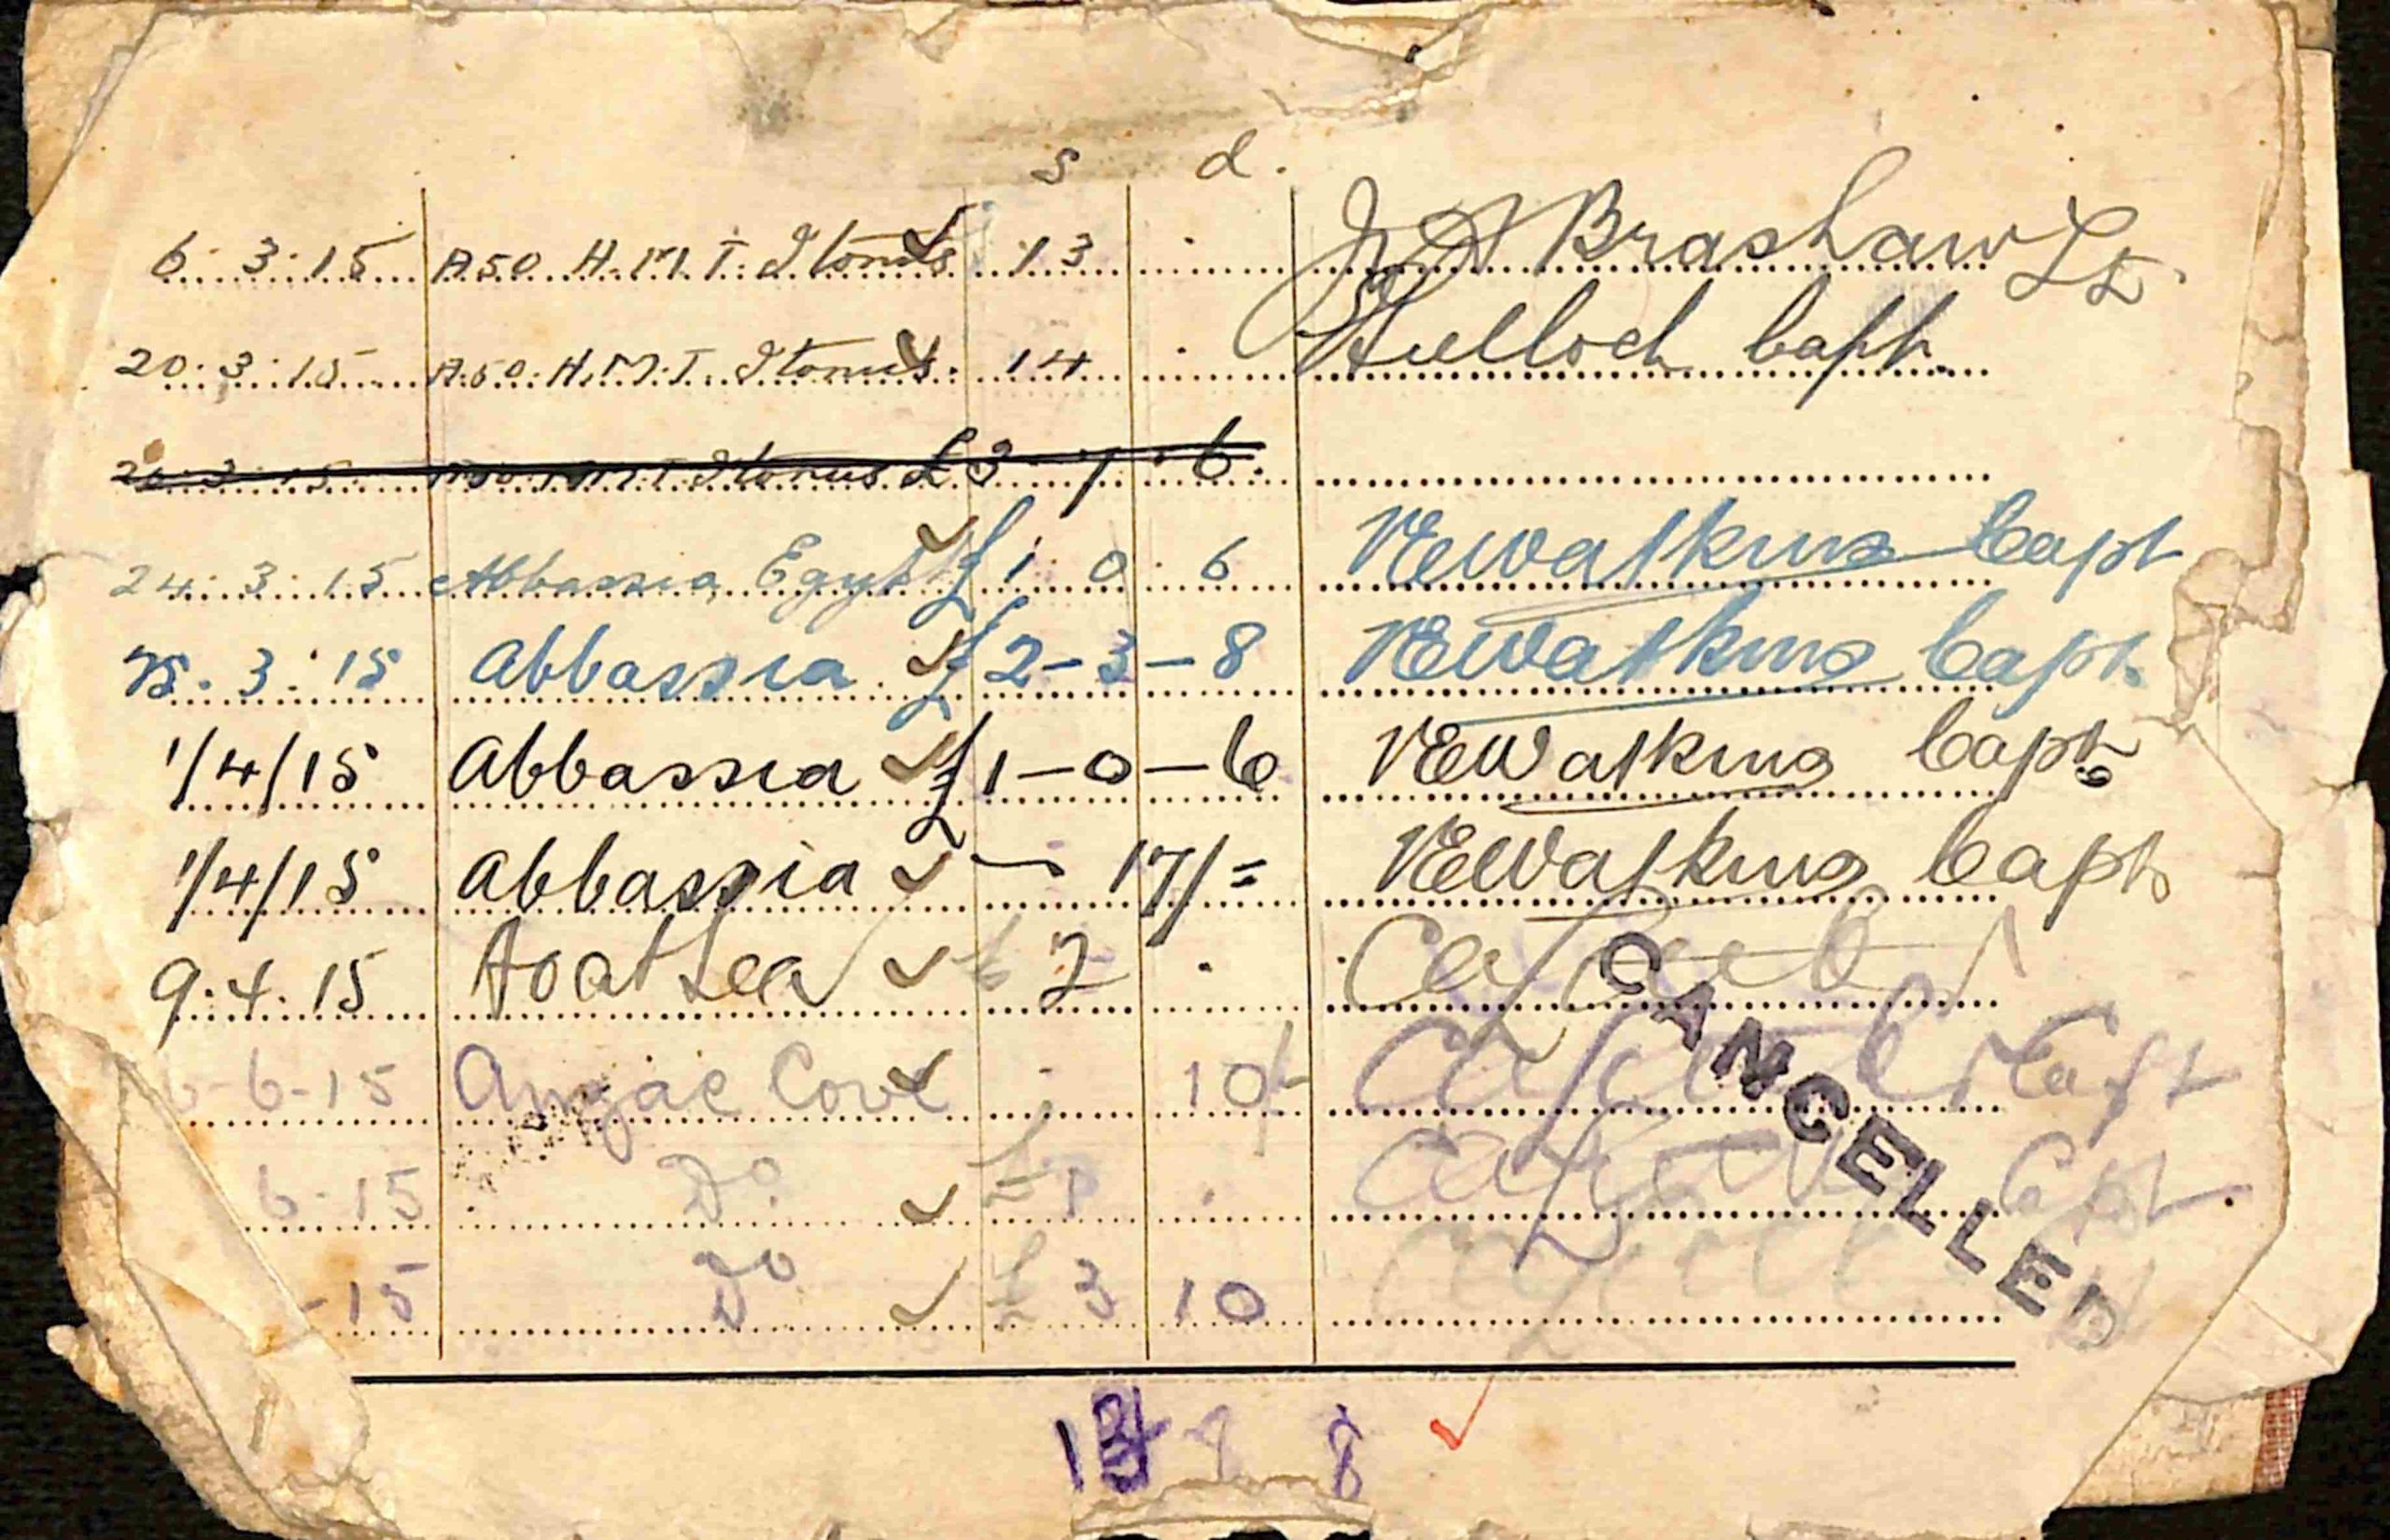 s d.
6. 3. 15 A.50. H.M.T. Itonus 13 . Brashaw Lt.
20. 3. 15 A.50. H.M.T. Itonus. 14 . Capt.
15 Itonus £3 7. 6.
24. 3. 15 Abbassia Egypt £1 0. 6 VEWatkins Capt
25. 3. 15 Abbassia. £2-3-8 VEWatkins Capt.
1/4/15 Abbassia £1-0-6 VEWatkins Capt
1/4/15 Abbassia - 17/= VEWatkins Capt
9. 4. 15 £ 2 .
6-15 Anzac Cove - 10/- Capt
6-15 Do. £ . Capt.
-15 Do £ 3 10
CANCELLED
8